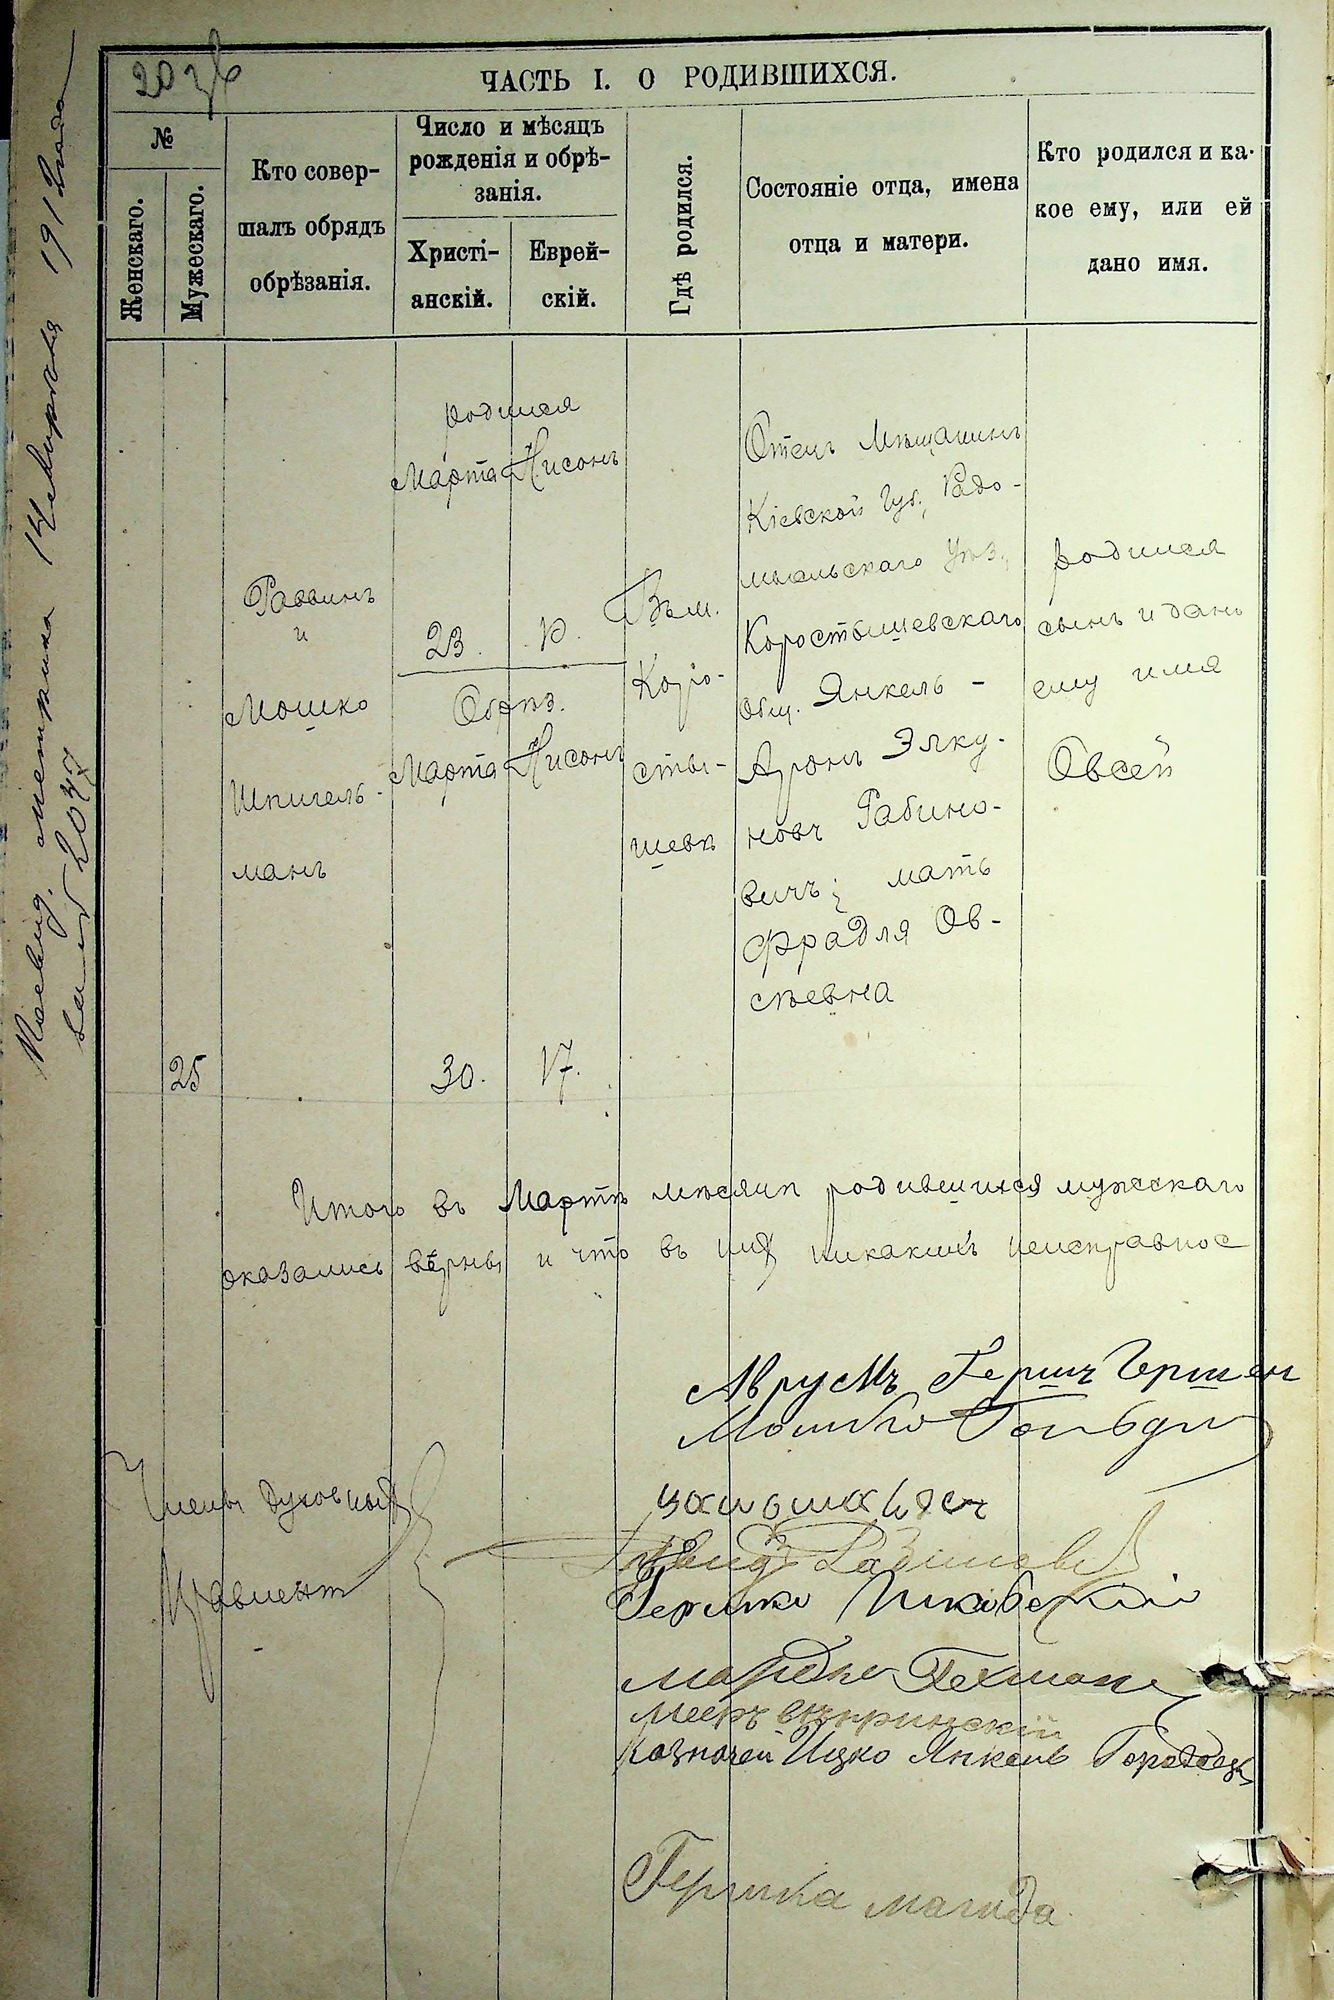 ЧАСТЬ I. О РОДИВШИХСЯ.
№
Женскаго.
Мужескаго.
Кто совер-
шалъ обрядъ
обрѣзанія.
Число и мѣсяцъ
рожденія и обрѣ-
занія.
Христі-
анскій.
Еврей-
скій.
Гдѣ родился.
Состояніе отца, имена
отца и матери.
Кто родился и ка-
кое ему, или ей
дано имя.
25
Раввинъ
и
Мошко
Шпигель-
манъ
родился
Марта Нисонъ
23. 10.
Обрѣз.
Марта Нисонъ
30. 17.
Въ м.
Коро-
сты-
шевѣ
Отецъ Мѣщанинъ
Кіевской Губ., Радо-
мысльскаго Уѣз.,
Коростышевскаго
Общ. Янкель -
Аронъ Элку-
новъ Рабино-
вичъ; мать
Фрадля Ов-
сѣевна
родился
сынъ и данъ
ему имя
Овсей
Итого въ Мартѣ мѣсяцѣ родившихся мужескаго
оказались вѣрны и что въ никакихъ неисправнос
Аврумъ Гершъ
Мошко
Члены Духовный
Гершко
Мордко
Мееръ
Казначей Ицко Янкель
Гершка
метрика 14 1912 года